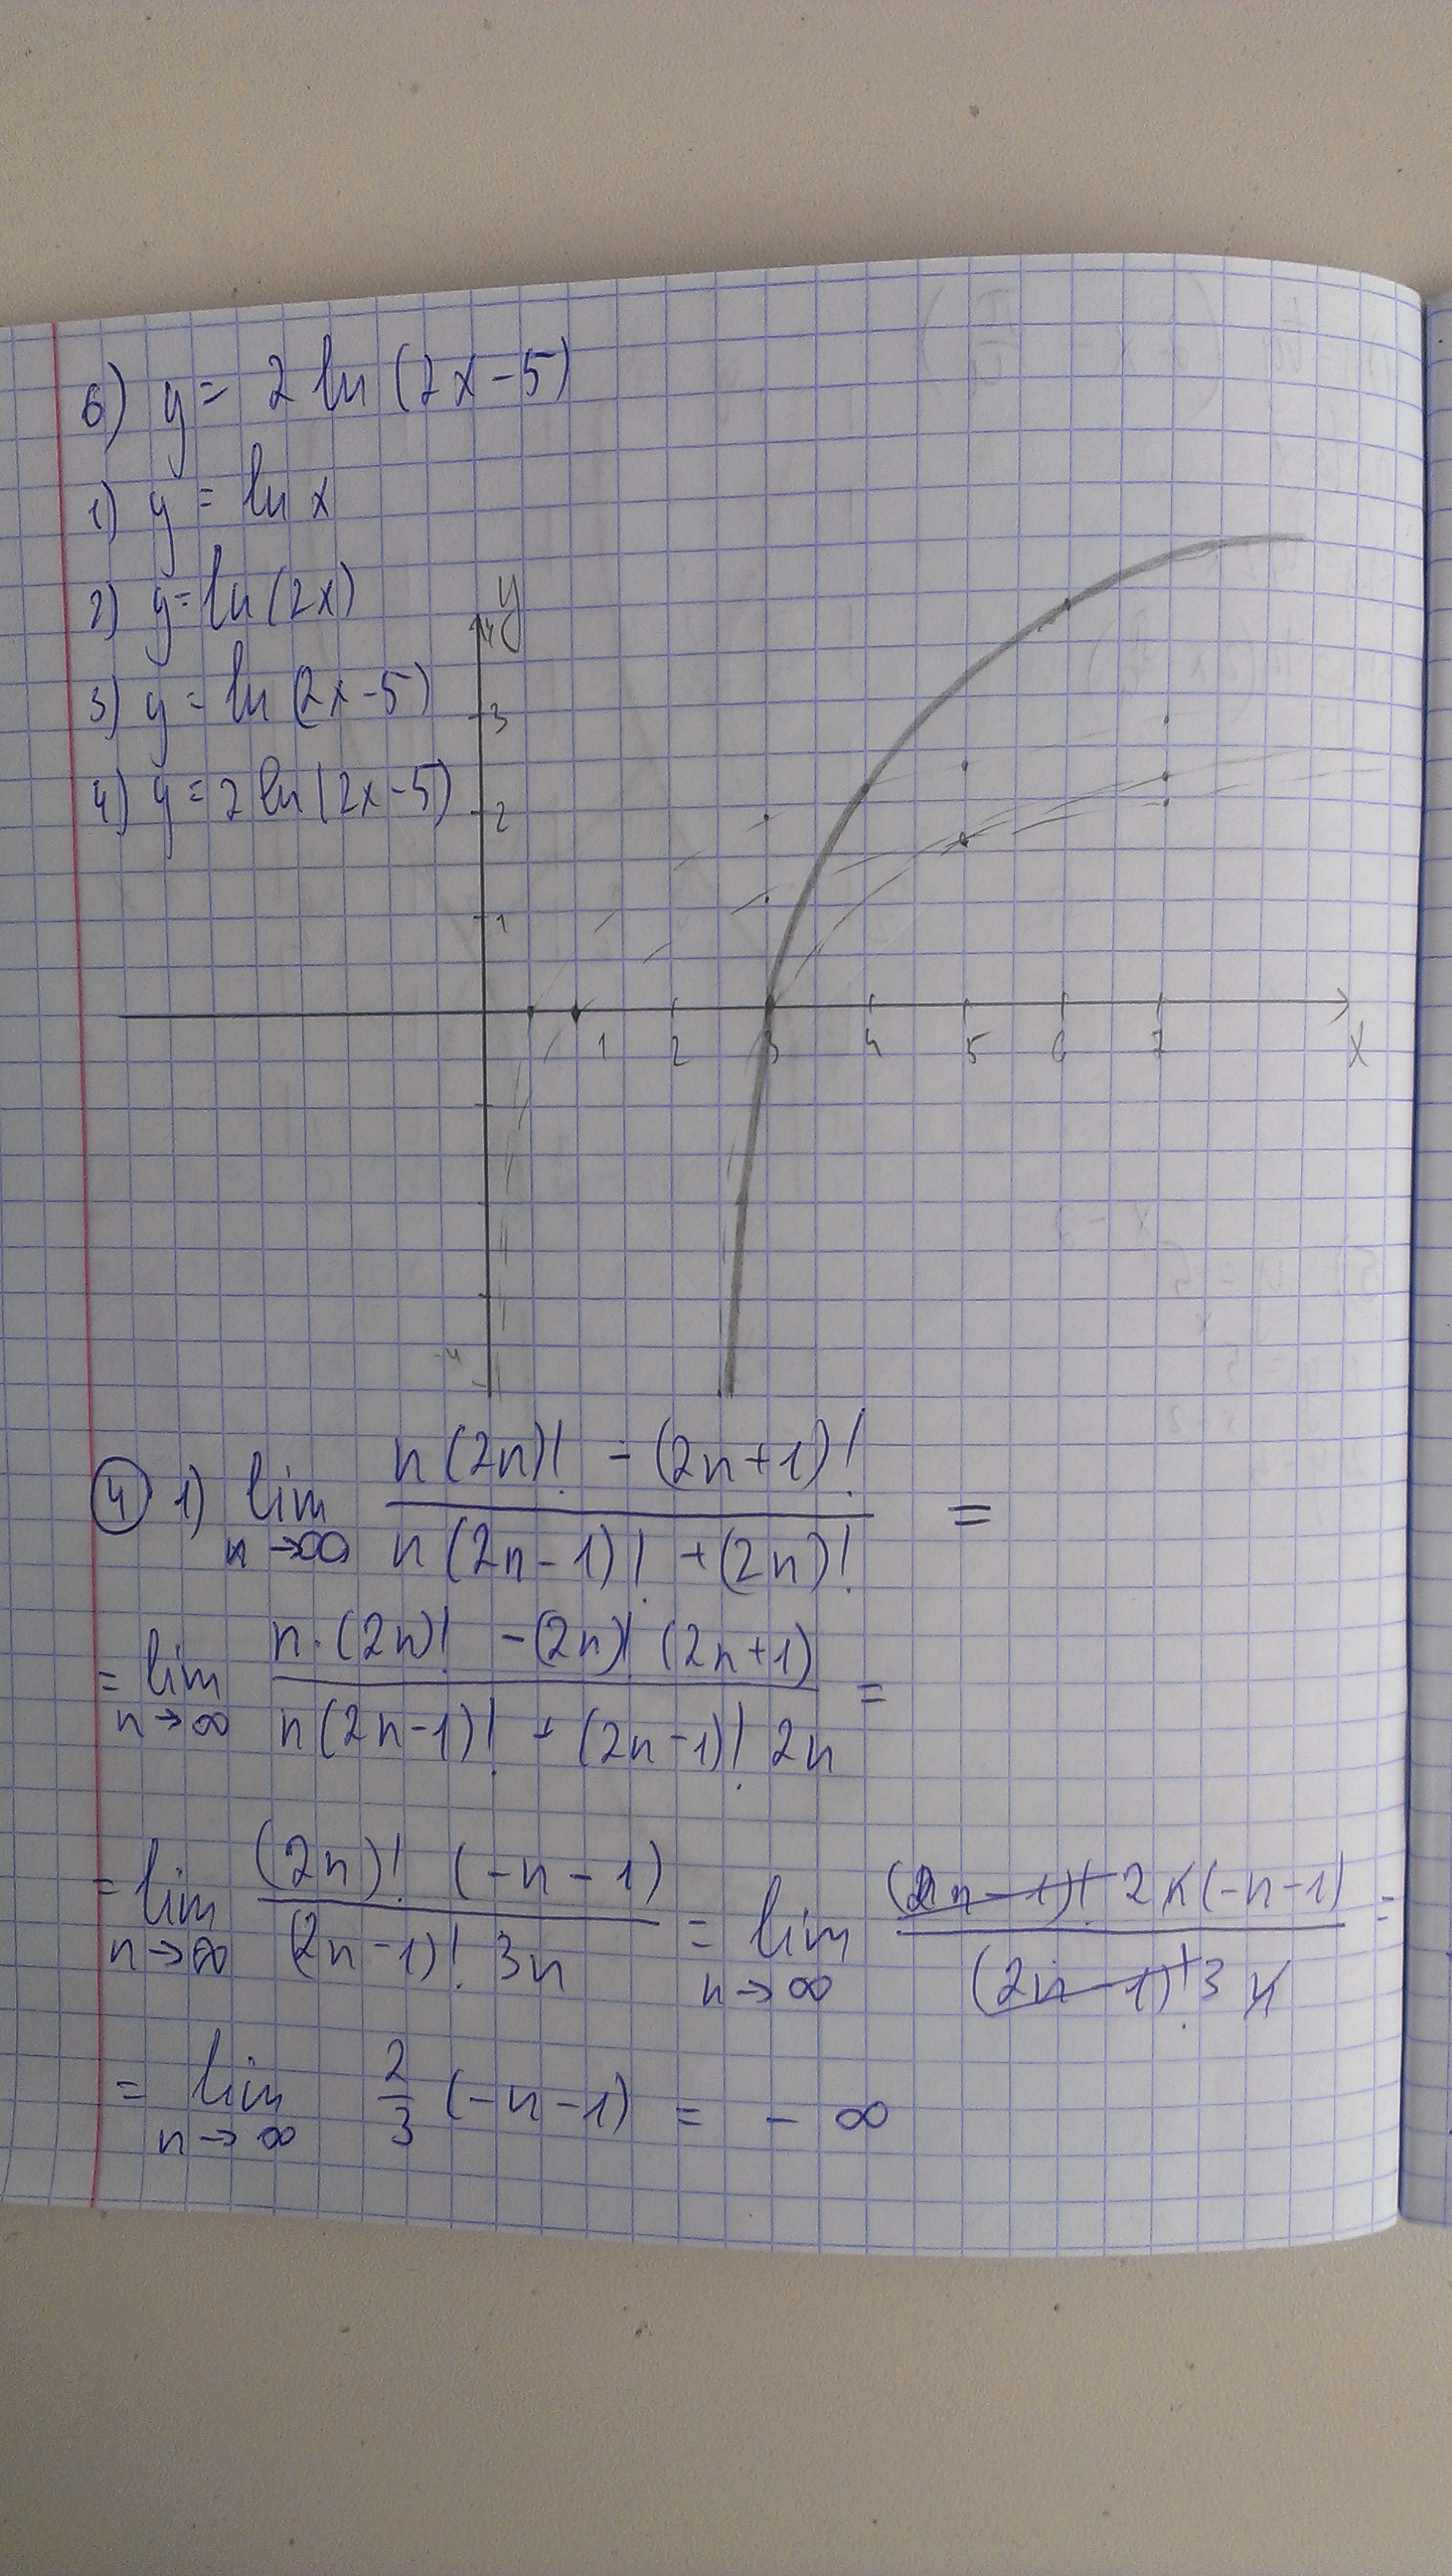 6) y = 2 ln (2x-5)
1) y = ln x
2) y = ln (2x)
3) y = ln (2x-5)
4) y = 2 ln (2x-5)
y
4
3
2
1
1 2 3 4 5 6 7 x
-4
④ 1) lim n→∞ (n(2n)! - (2n+1)!) / (n(2n-1)! + (2n)!) =
= lim n→∞ (n·(2n)! - (2n)! (2n+1)) / (n(2n-1)! + (2n-1)! 2n) =
= lim n→∞ ((2n)! (-n-1)) / ((2n-1)! 3n) = lim n→∞ ((2n-1)! 2n(-n-1)) / ((2n-1)! 3n) =
= lim n→∞ 2/3 (-n-1) = -∞